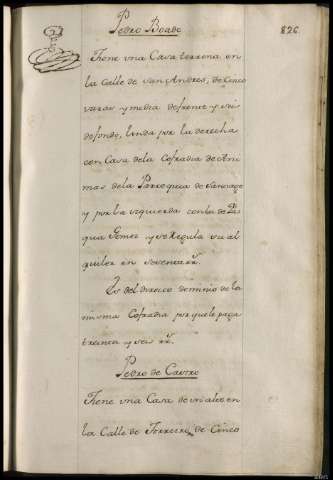 Pedro Boado
826
Tiene una Casa terrena en
la Calle de San Andres, de Cinco
varas y media de frente y seis
de fondo, linda por la derecha
con Casa de la Cofradia de Ani
mas de la Parroquia de Santiago
y por la izquierda con la de
qua Gomez y se Regula su al
quiler en sesenta rr.
Es del directo dominio de la
misma Cofradia por que le paga
treinta y seis rr.
Pedro de Castro
Tiene una Casa de un alto en
la Calle de Torreiro, de Cinco